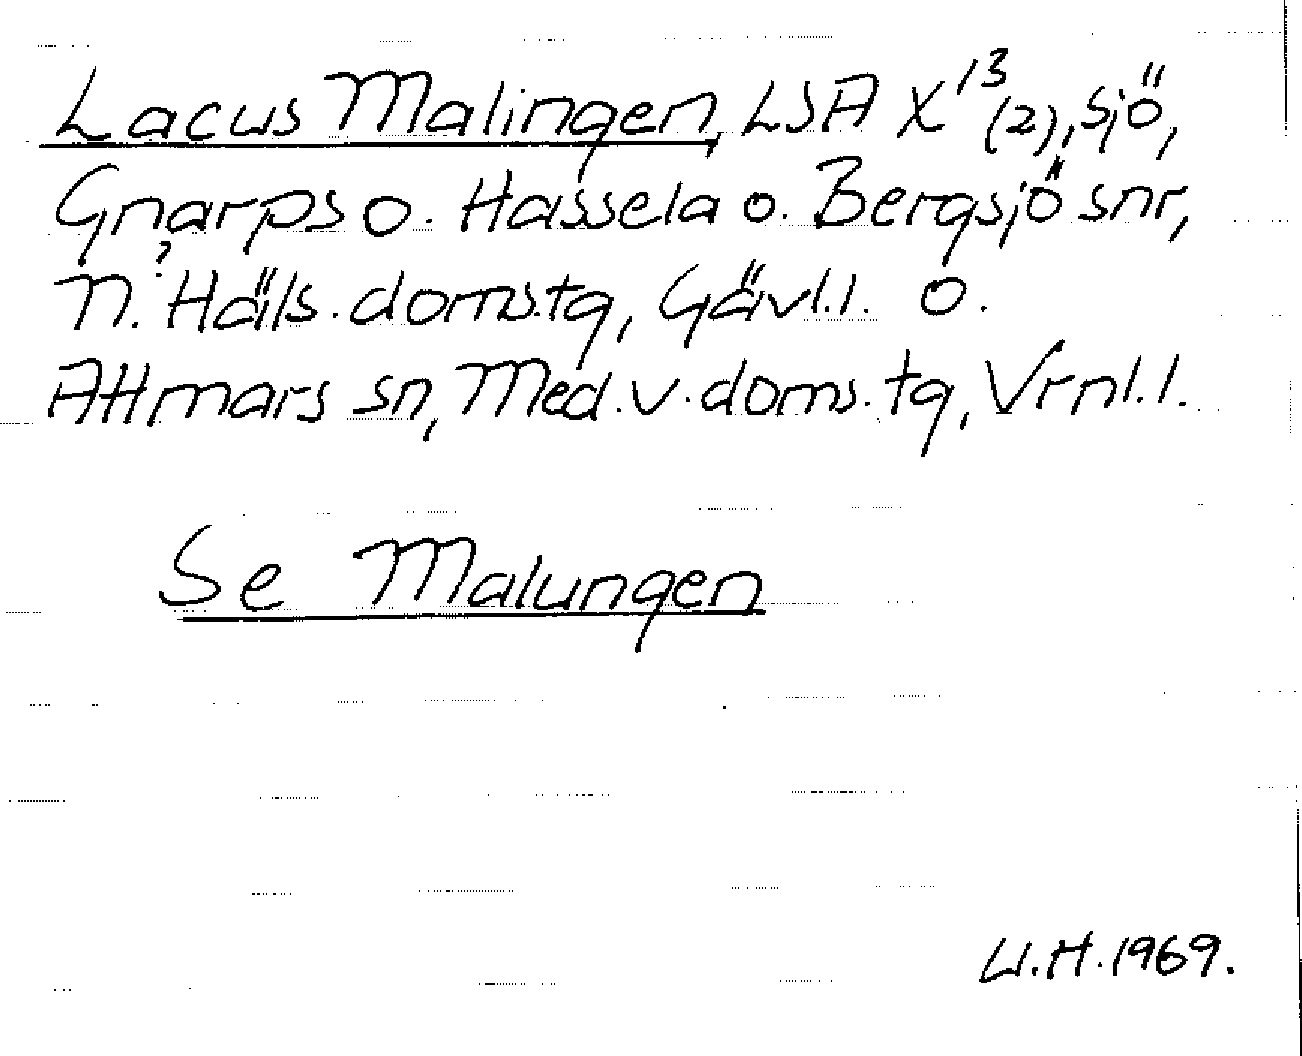 Lacus Malingen, LSA X¹³(2), sjö,
Gnarps o. Hassela o. Bergsjö snr,
n. Häls. doms.tg, Gävl.l. o.
Attmars sn, Med.v.doms.tg, Vrnl.l.
Se Malungen
U.H.1969.